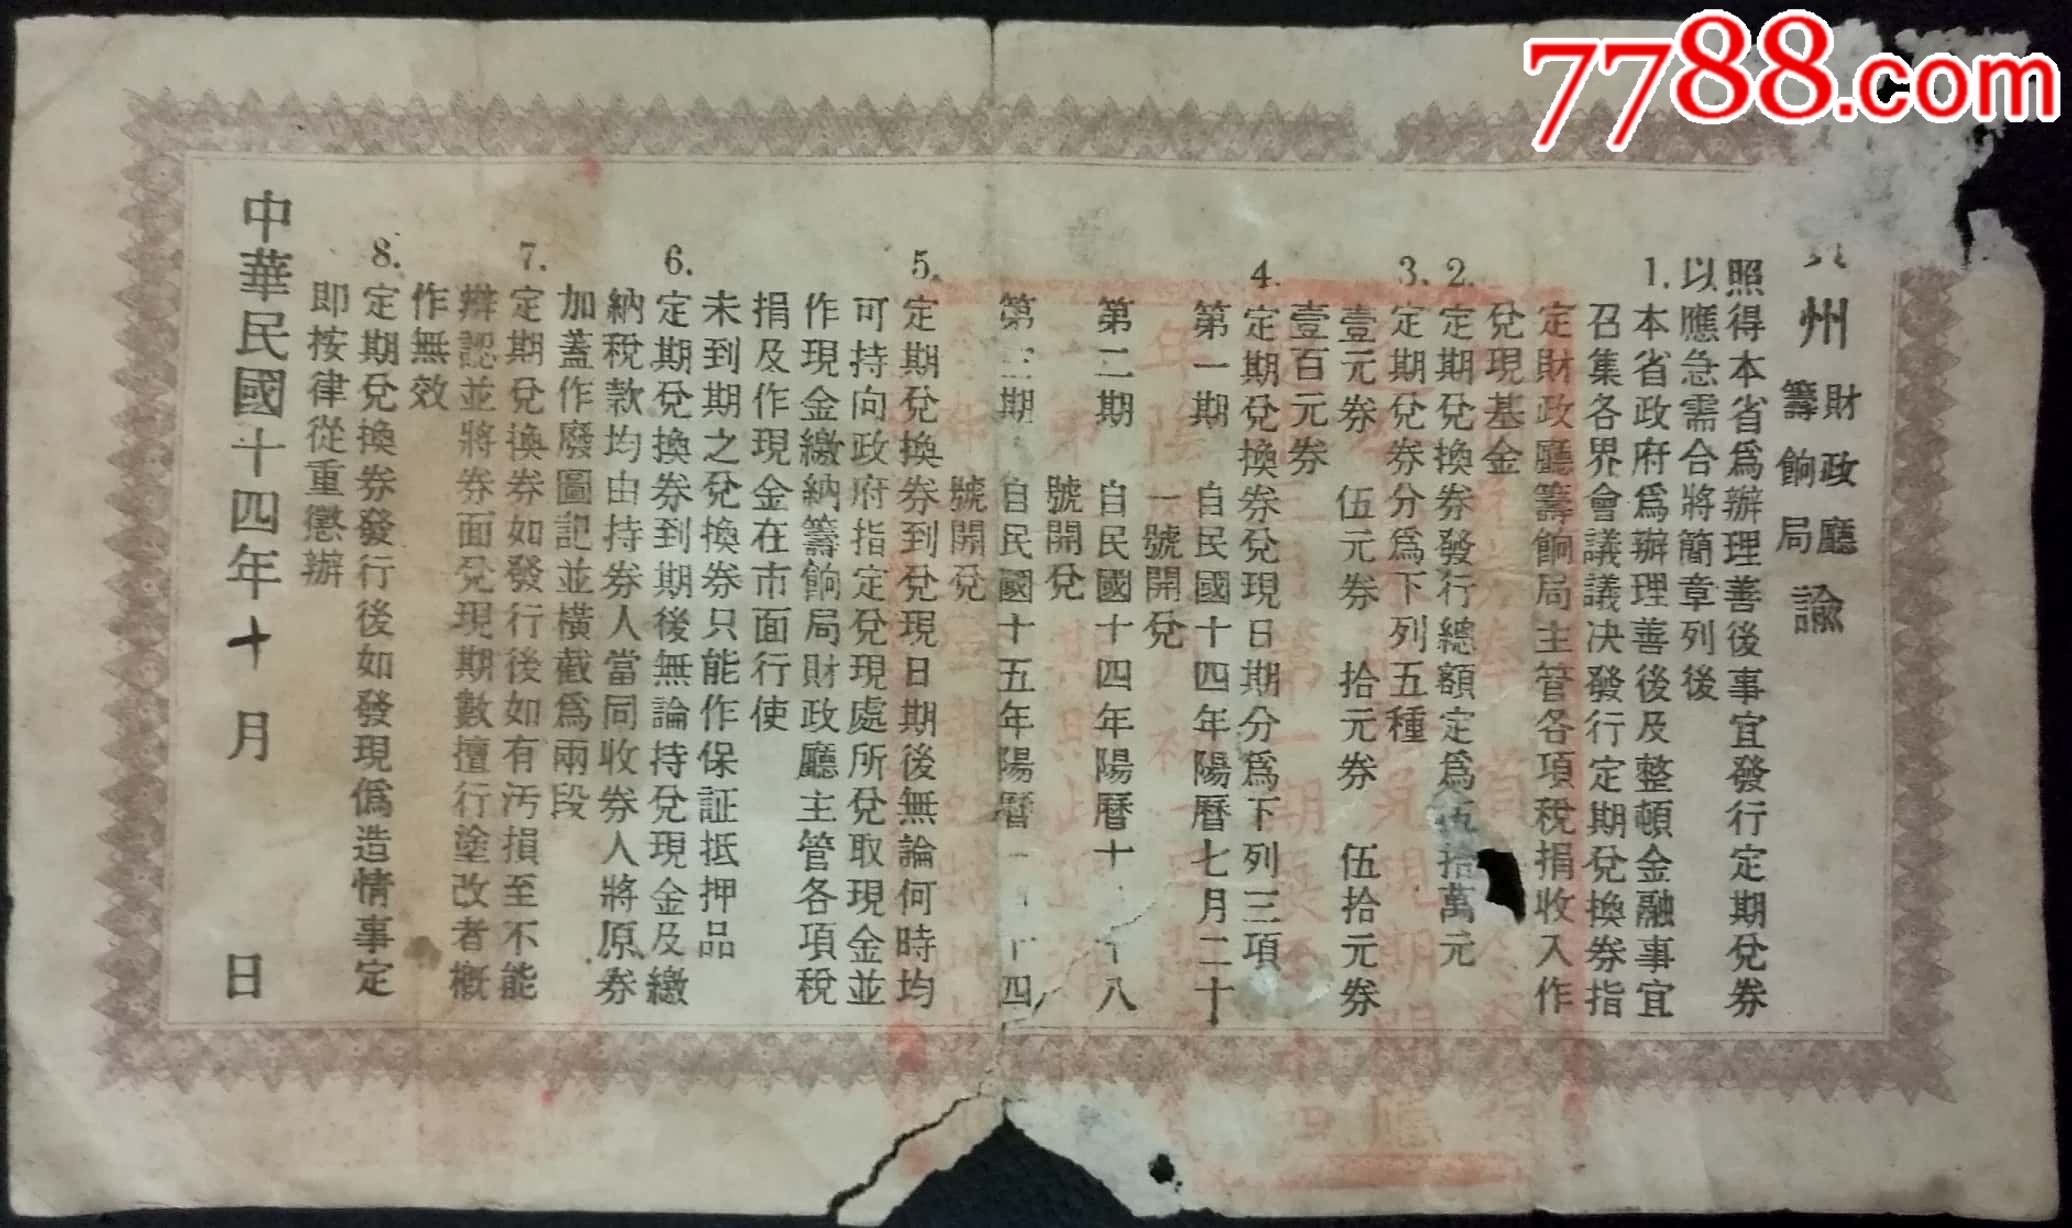 7788.com
州財政廳籌餉局諭
照得本省爲辦理善後事宜發行定期兌券
以應急需合將簡章列後
1.本省政府爲辦理善後及整頓金融事宜
召集各界會議議决發行定期兌換券指
定財政廳籌餉局主管各項稅捐收入作
兌現基金
2.定期兌換券發行總額定爲伍拾萬元
3.定期兌券分爲下列五種
壹元券 伍元券 拾元券 伍拾元券
壹百元券
4.定期兌換券兌現日期分爲下列三項
第一期 自民國十四年陽曆七月二十
一號開兌
第二期 自民國十四年陽曆十 十八
號開兌
第三期 自民國十五年陽曆一 十四
號開兌
5.定期兌換券到兌現日期後無論何時均
可持向政府指定兌現處所兌取現金並
作現金繳納籌餉局財政廳主管各項稅
捐及作現金在市面行使
未到期之兌換券只能作保証抵押品
6.定期兌換券到期後無論持兌現金及繳
納稅款均由持券人當同收券人將原券
加蓋作廢圖記並橫截爲兩段
7.定期兌換券如發行後如有汚損至不能
辨認並將券面兌現期數擅行塗改者概
作無效
8.定期兌換券發行後如發現僞造情事定
即按律從重懲辦
中華民國十四年十月 日